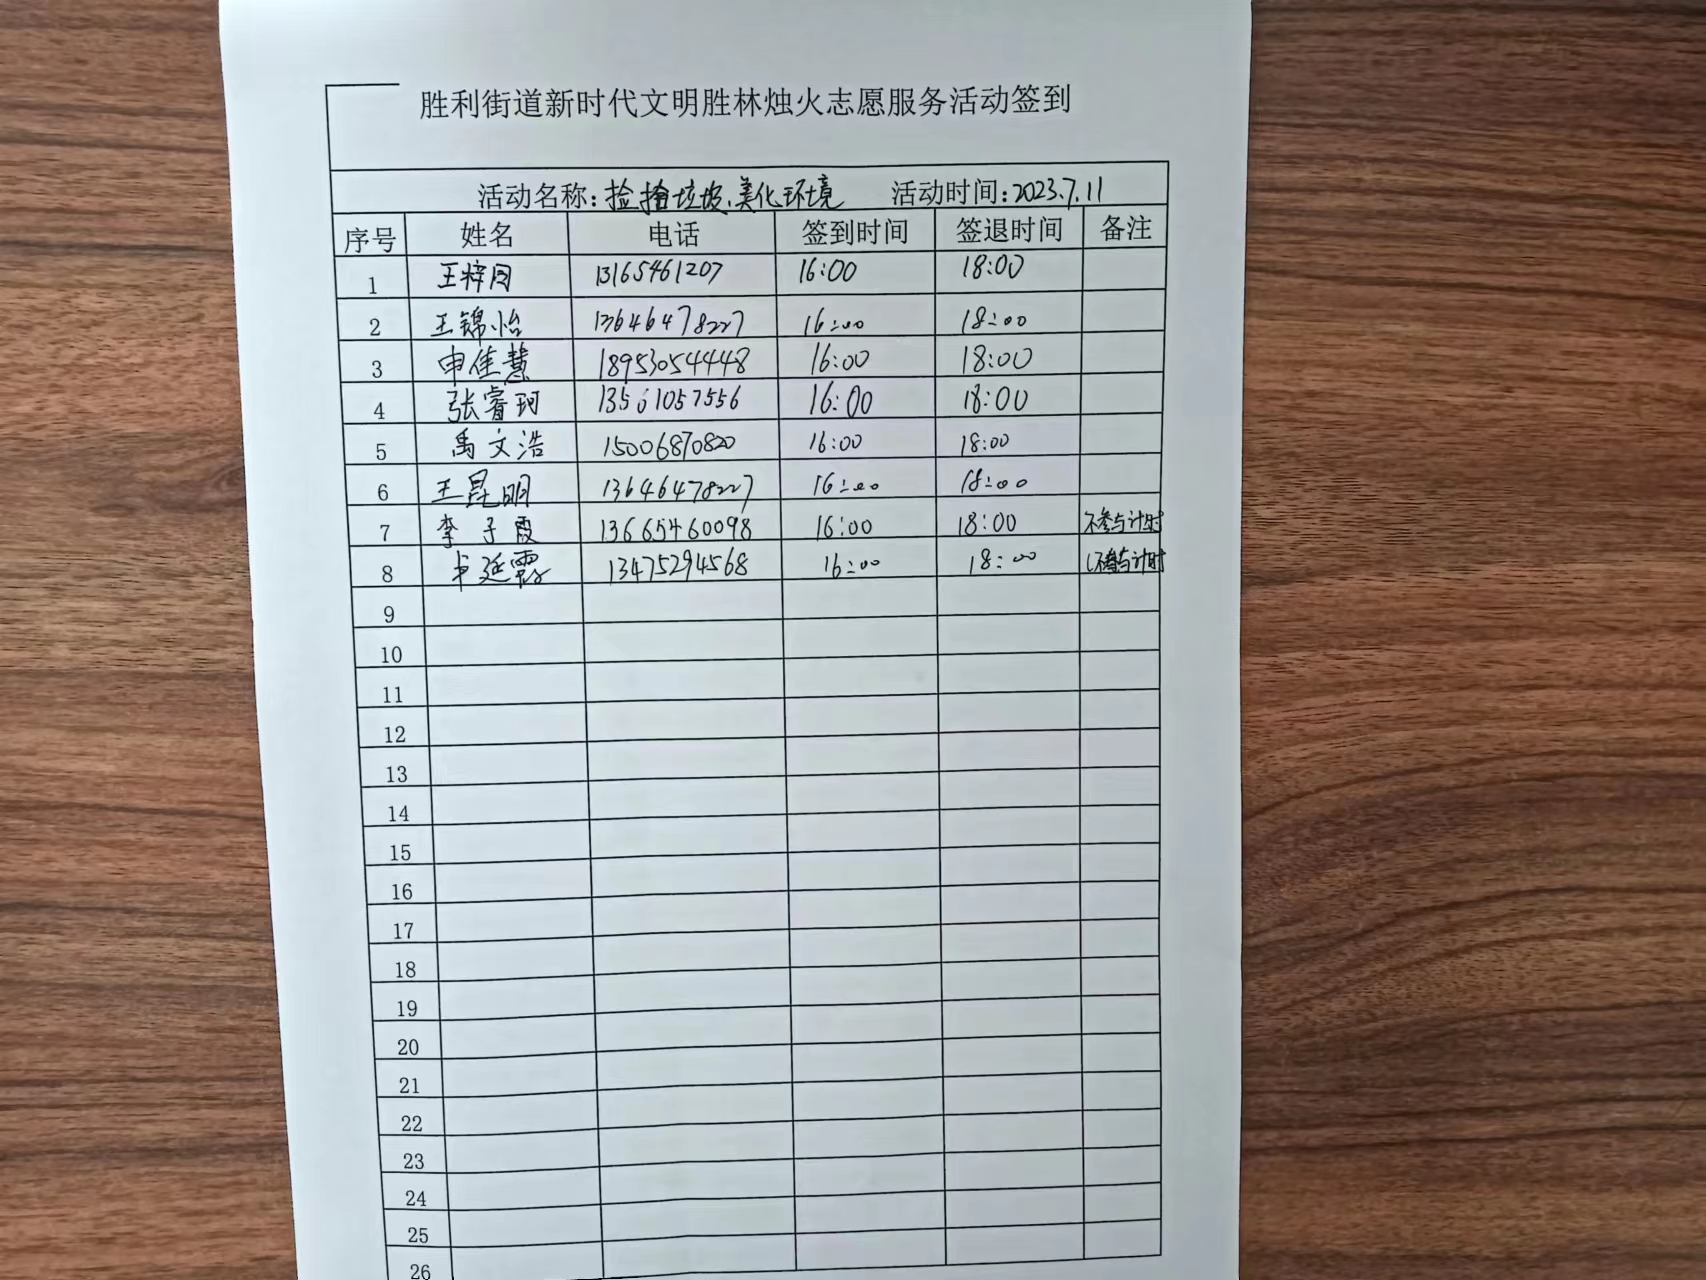 胜利街道新时代文明胜林烛火志愿服务活动签到
活动名称:捡拾垃圾、美化环境 活动时间:2023.7.11
序号 姓名 电话 签到时间 签退时间 备注
1 王梓同 13165461207 16:00 18:00
2 王锦怡 13646478227 16:00 18:00
3 申佳慧 18953054448 16:00 18:00
4 张睿珂 13561057556 16:00 18:00
5 禹文浩 15006870820 16:00 18:00
6 王昆明 13646478227 16:00 18:00
7 李子霞 13665460098 16:00 18:00 不参与计时
8 延霞 13475294568 16:00 18:00 不参与计时
9
10
11
12
13
14
15
16
17
18
19
20
21
22
23
24
25
26